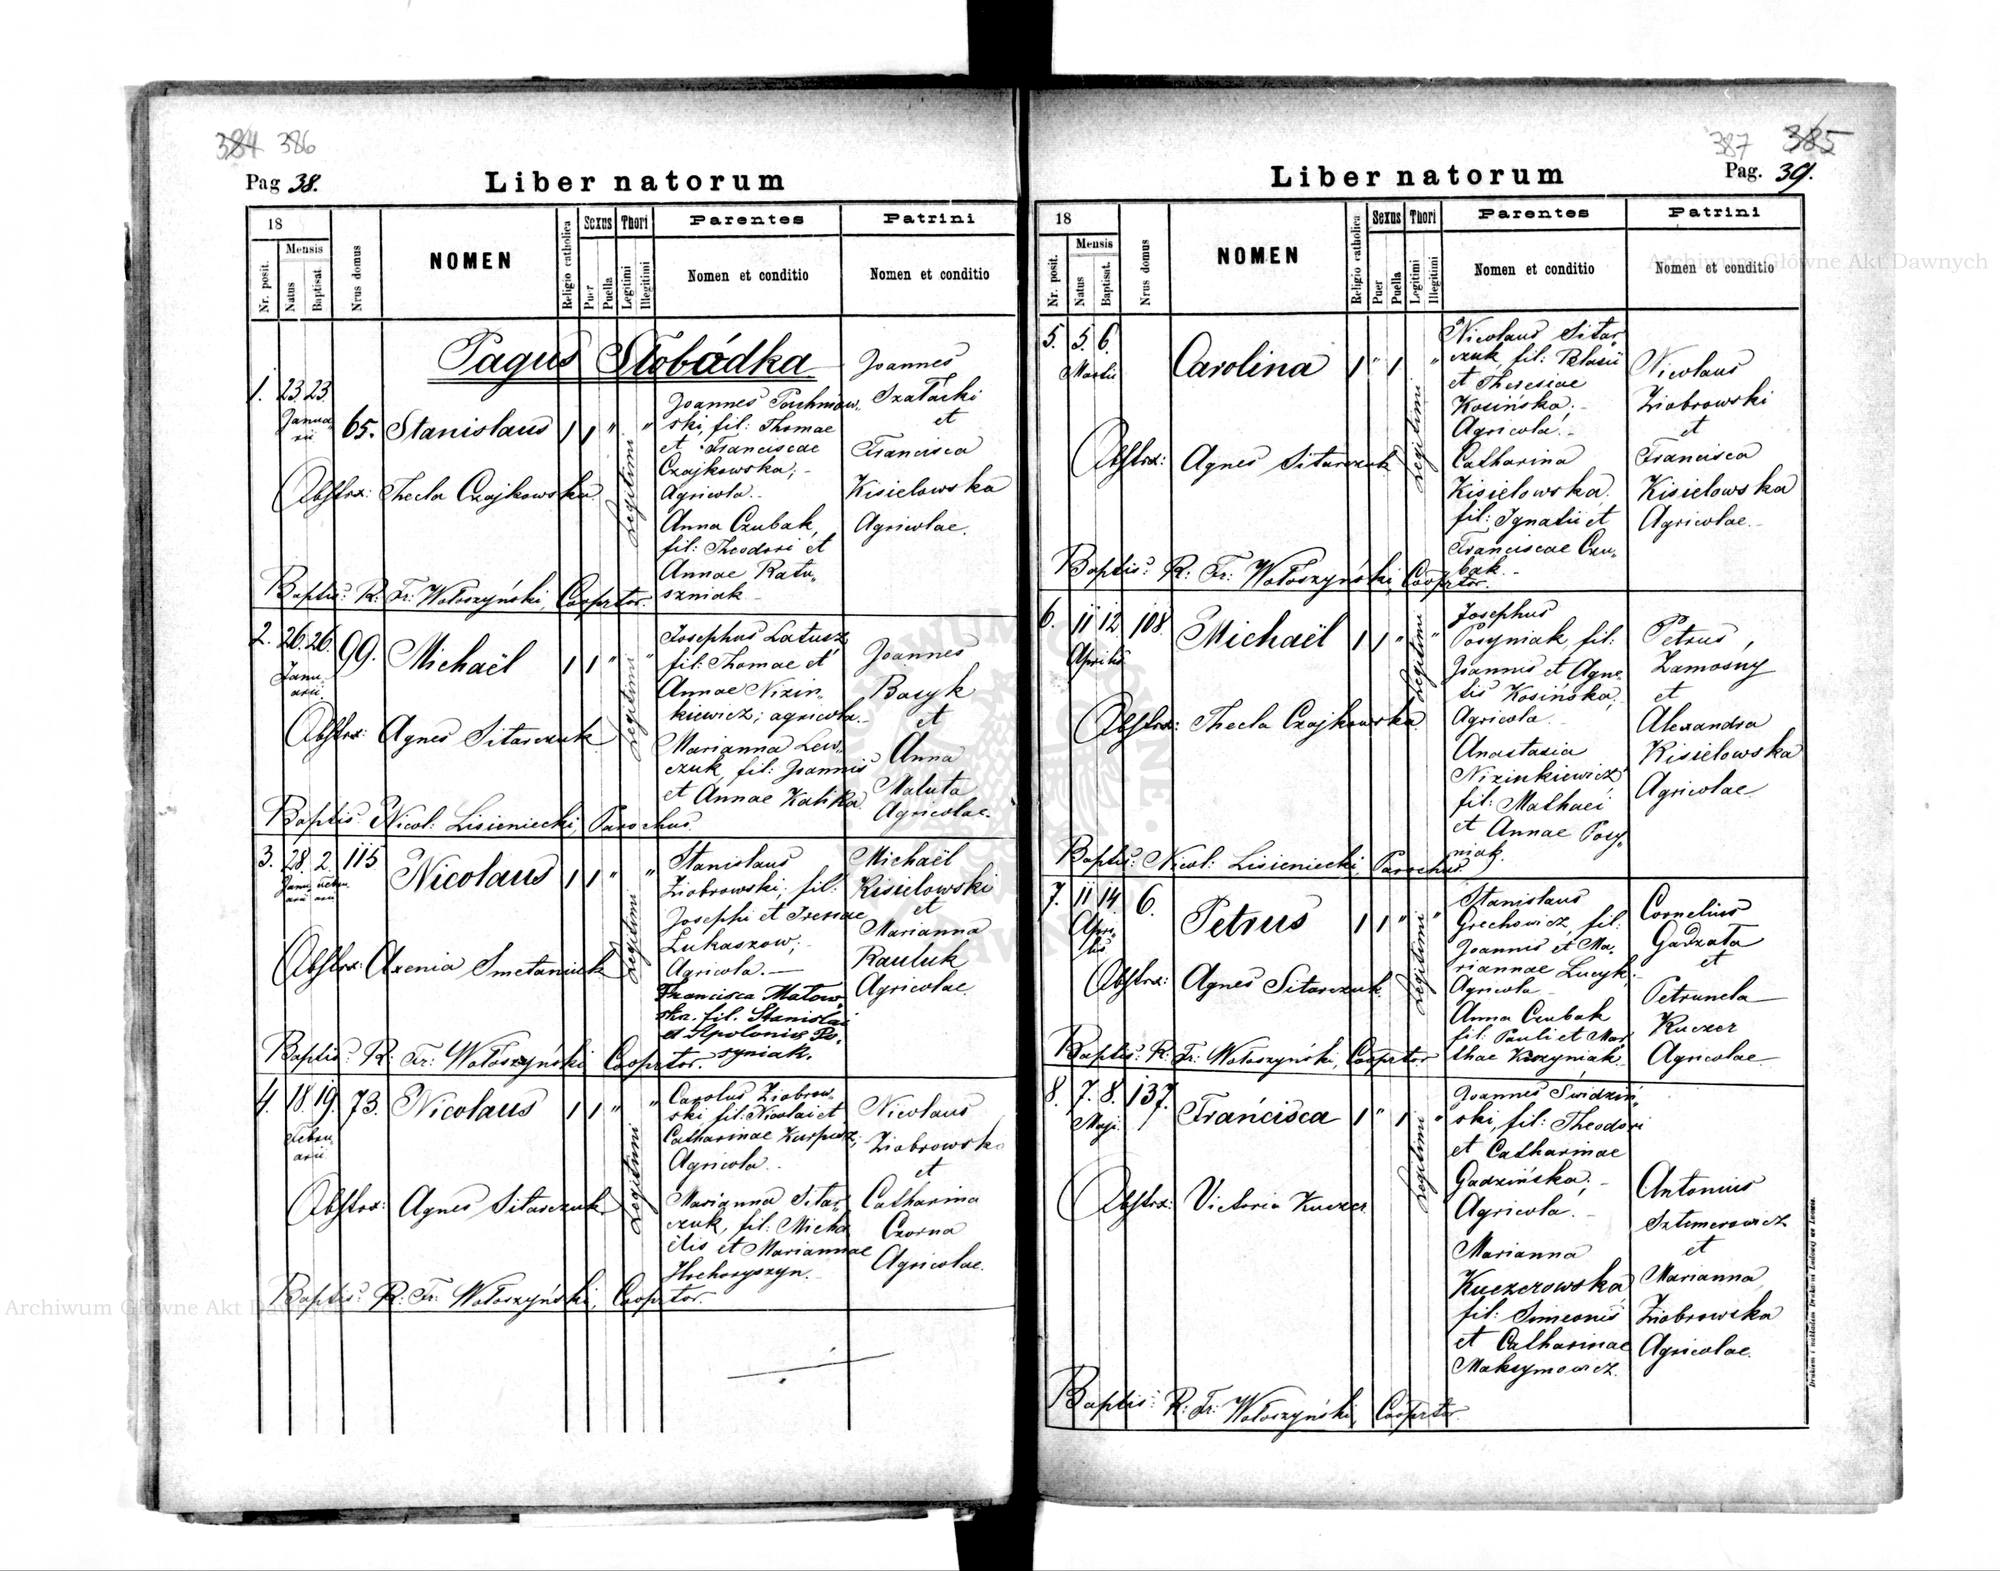 384 386
Pag 38.
Liber natorum
18
Mensis
Nr. posit.
Natus
Baptisat.
Nrus domus
NOMEN
Religio catholica
Sexus
Puer
Puella
Thori
Legitimi
Illegitimi
Parentes
Nomen et conditio
Patrini
Nomen et conditio
Pagus Słobódka
1. 23. 23.
Janua-
rii
65. Stanislaus 1 1 " "
Legitimi
Obstrx: Thecla Czajkowska
Joannes
ski, fil: Thomae
et Franciscae
Czajkowska;
Agricola.
Anna Czubak,
fil: Theodori et
Annae Ratu-
szniak
Joannes
Szatarski
et
Francisca
Kisielowska
Agricolae.
Baptis: R: Fr: Wołoszyński, Cooprtor.
2. 26. 26. 99. Michaël 1 1 " "
Janu-
arii.
Legitimi
Obstrx: Agnes Sitarczuk
Josephus Latusz
fil: Thomae et
Annae Nizin-
kiewicz; agricola.
Marianna Lew-
czuk, fil: Joannis
et Annae Kalika
Joannes
Basyk
et
Anna
Maluta
Agricolae.
Baptis: Nicol: Lisieniecki, Parochus.
3. 28. 2. 115 Nicolaus 1 1 " "
Janu-
arii
Legitimi
Obstrx: Axenia Smetaniuk
Stanislaus
Ziobrowski; fil:
Josephi et Tresiae
Lukaszow;
Agricola.
Francisca Matow-
ska. fil. Stanislai
et Apolonia Po-
syniak.
Michaël
Kisielowski
et
Marianna
Rauluk
Agricolae.
Baptis: R: Fr: Wołoszyński Cooprtor.
4. 18. 19. 73. Nicolaus 1 1 " "
Febru-
arii
Legitimi
Obstrx: Agnes Sitarczuk
Carolus Ziobrow-
ski fil: Nicolai et
Catharinae Karpusz;
Agricola.
Marianna Sitar-
czuk, fil: Micha
ëlis et Mariannae
Hrehoryszyn.
Nicolaus
Ziobrowski
et
Catharina
Czorna
Agricolae.
Baptis: R: Fr: Wołoszyński, Cooprtor.
387 385
Pag. 39.
Liber natorum
18
Mensis
Nr. posit.
Natus
Baptisat.
Nrus domus
NOMEN
Religio catholica
Sexus
Puer
Puella
Thori
Legitimi
Illegitimi
Parentes
Nomen et conditio
Patrini
Nomen et conditio
5. 5. 6. Carolina 1 " 1 "
Martii
Legitimi
Obstrx: Agnes Sitarczuk
Nicolaus Sitar-
czuk, fil: Blasii
et Theresiae
Kosińska;
Agricola.
Catharina
Kisielowska.
fil: Ignatii et
Franciscae Czu-
bak.
Nicolaus
Ziobrowski
et
Francisca
Kisielowska
Agricolae.
Baptis: R: Fr: Wołoszyński, Cooprtor.
6. 11 12. 108. Michaël 1 1 " "
Aprilis
Legitimi
Obstrx: Thecla Czajkowska
Josephus
Posyniak, fil:
Joannis et Agne-
tis Kosińska,
Agricola.
Anastasia
Nizinkiewicz
fil: Mathaei
et Annae Posy-
niak.
Petrus,
Zamosny
et
Alexandra
Kisielowska
Agricolae
Baptis: Nicol: Lisieniecki, Parochus.
7. 11 14. 6. Petrus 1 1 " "
Apri-
lis
Legitimi
Obstrx: Agnes Sitarczuk
Stanislaus
Grechowicz, fil:
Joannis et Ma-
riannae Lucyk;
Agricola
Anna Czubak
fil: Pauli et Mar
thae Koszyniak
Cornelius
Gadzata
et
Petrunela
Kuczer
Agricolae
Baptis: R: Fr: Wołoszyński, Cooprtor
8. 7. 8. 137. Francisca 1 " 1 "
Maji.
Legitimi
Obstrx: Victoria Kuczer
Joannes Swidziń-
ski, fil: Theodori
et Catharinae
Gadzińska;
Agricola.
Marianna
Kuczerowska
fil: Simeonis
et Catharinae
Maksymowicz.
Antonius
Sztemerowicz
et
Marianna
Ziobrowska
Agricolae.
Baptis: R: Fr: Wołoszyński, Cooprtor.
Archiwum Główne Akt Dawnych
Archiwum Główne Akt Dawnych